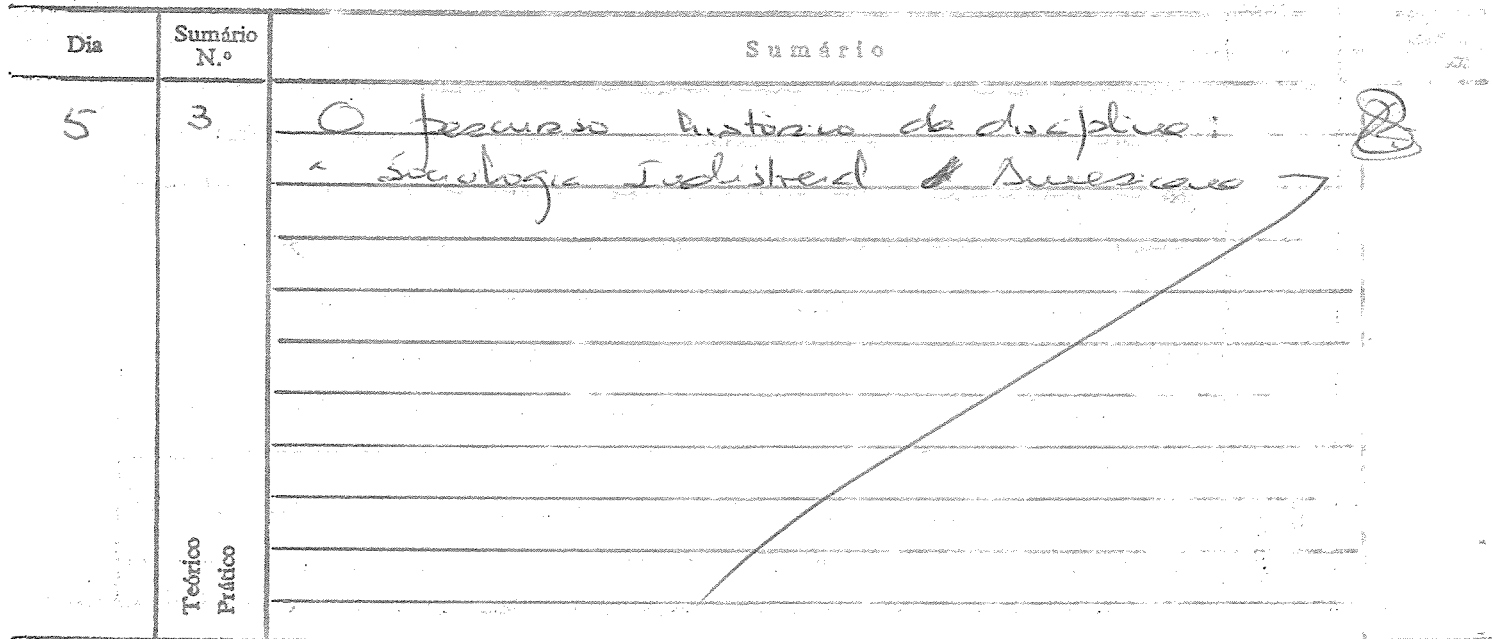 Dia Sumário N.º Sumário
5 3 O percurso histórico da disciplina:
a Sociologia Industrial Americana
Teórico
Prático